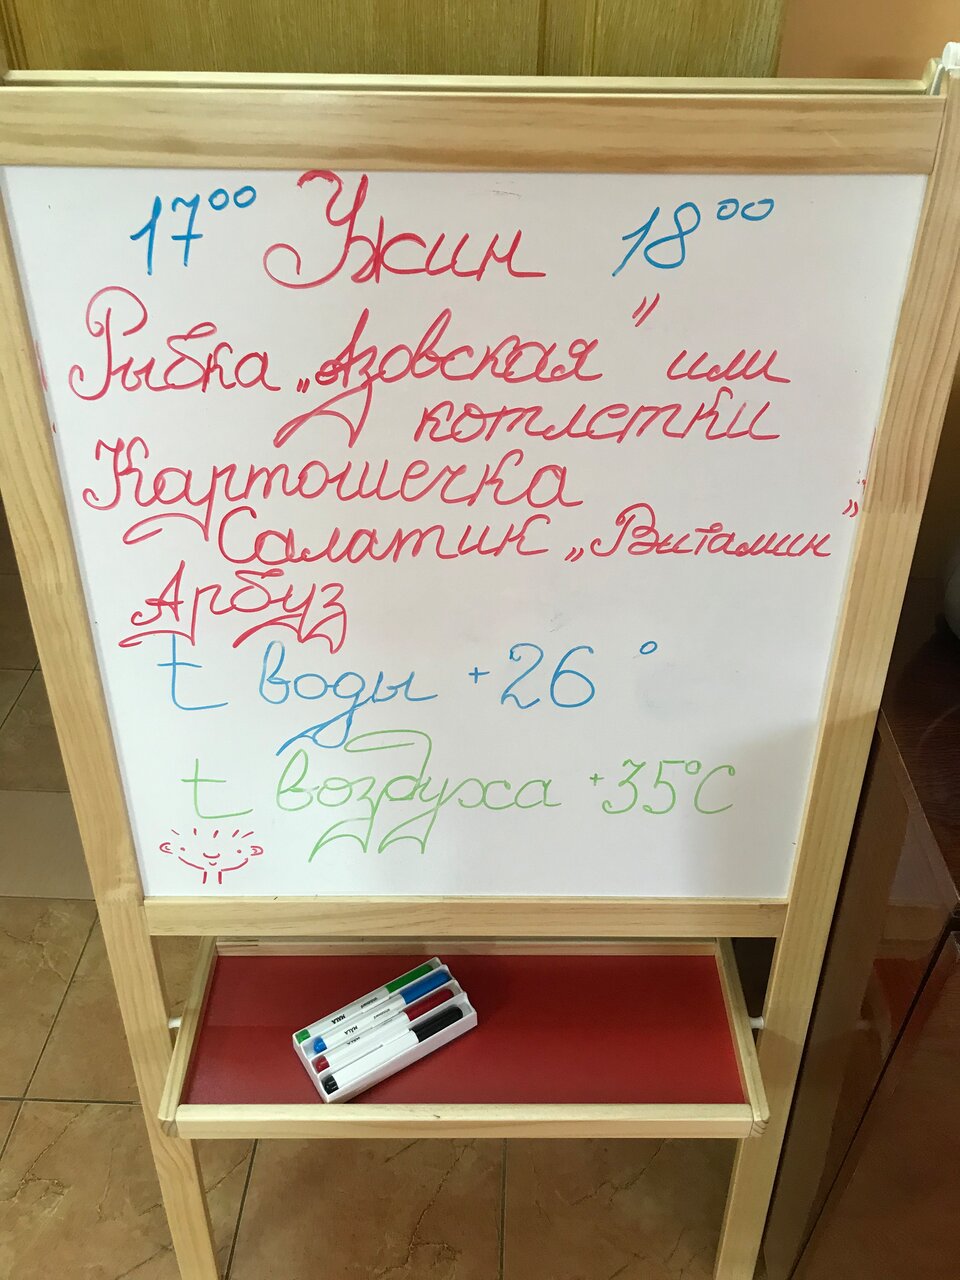 17⁰⁰ Ужин 18⁰⁰
Рыбка „Азовская” или
котлетки
Картошечка
Салатик „Витамин”
Арбуз
t воды +26°
t воздуха +35°C
MÅLA
MÅLA
MÅLA